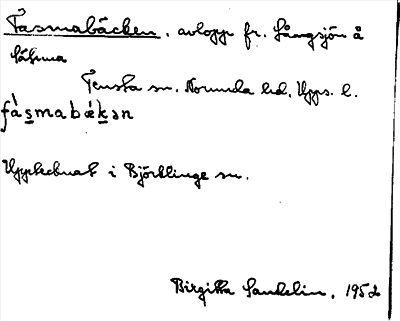 Fasmabäcken, avlopp fr. Långsjön å
Läbma
Tensta sn. Norunda hd, Upps. l.
fàsmabǽkən
Upptecknat i Björklinge sn.
Birgitta Sandelin, 1952